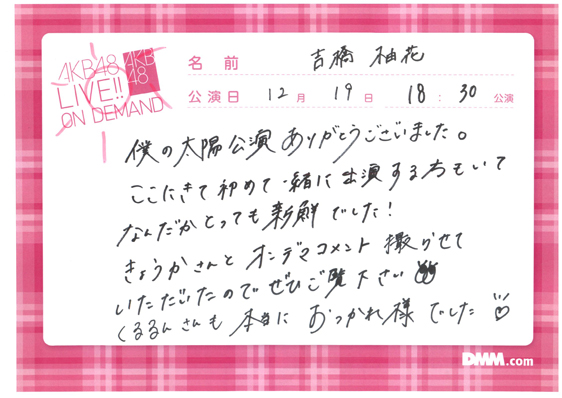 AKB48
LIVE!!
ON DEMAND
AKB
48
名前 吉橋 柚花
公演日 12月 19日 18:30公演
僕の太陽公演ありがとうございました。
ここにきて初めて一緒に出演する方もいて
なんだかとっても新鮮でした!
きょうかさんとオンデマコメント撮らせて
いただいたのでぜひご覧下さい
くるるんさんも本当におつかれ様でした♡
DMM.com